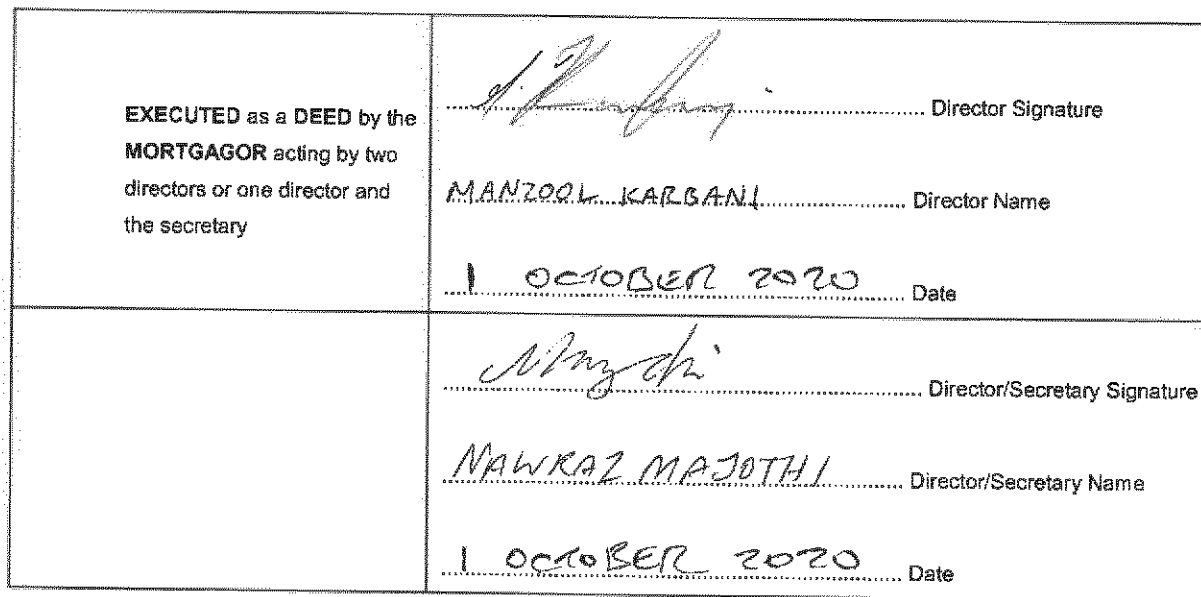 EXECUTED as a DEED by the
MORTGAGOR acting by two
directors or one director and
the secretary
Director Signature
MANZOOL KARBANI Director Name
1 OCTOBER 2020 Date
Director/Secretary Signature
NAWRAZ MAJOTHI Director/Secretary Name
1 OCTOBER 2020 Date